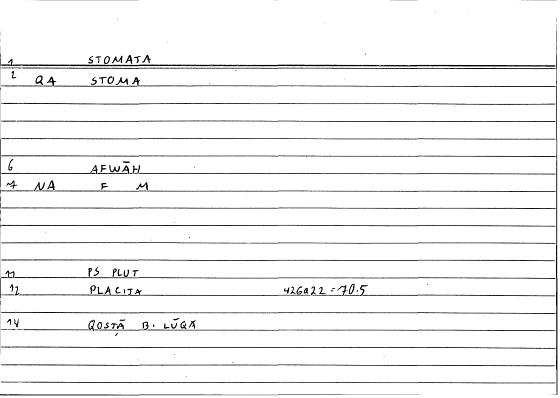 1 STOMATA
2 QA STOMA
6 AFWĀH
7 NA F M
11 PS PLUT
12 PLACITA 426a22 = 70.5
14 QOSṬĀ B. LŪQĀ